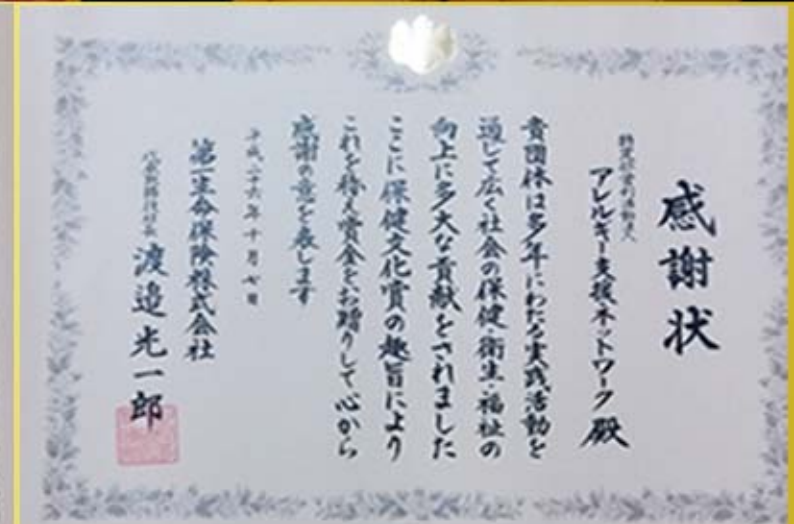 感謝状
特定非営利活動法人
アレルギー支援ネットワーク殿
貴団体は多年にわたる実践活動を
通して広く社会の保健・衛生・福祉の
向上に多大な貢献をされました
ここに保健文化賞の趣旨により
これを称え賞金をお贈りして心から
感謝の意を表します
平成二十六年十月七日
第一生命保険株式会社
代表取締役社長 渡邉光一郎